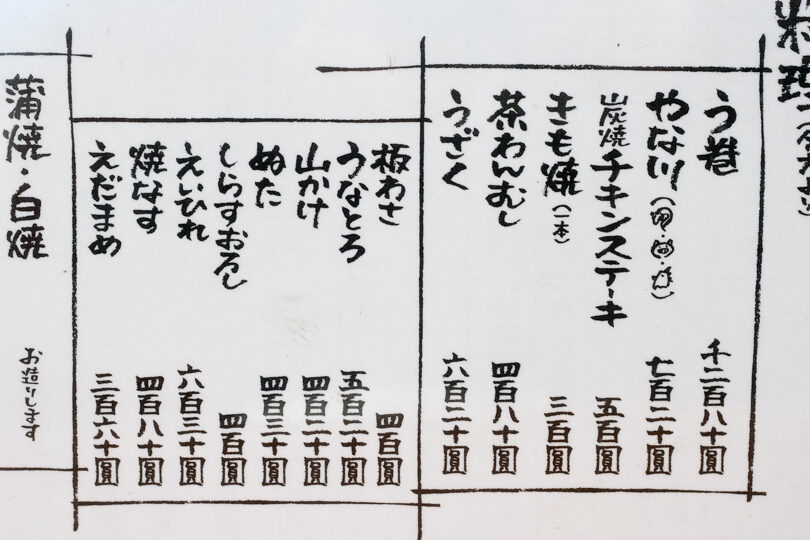 う巻 千二百八十圓
やな川 七百二十圓
炭焼チキンステーキ 五百圓
きも焼（一本） 三百圓
茶わんむし 四百八十圓
うざく 六百二十圓
板わさ 四百圓
うなとろ 五百二十圓
山かけ 四百二十圓
ぬた 四百三十圓
しらすおろし 四百圓
えいひれ 六百三十圓
焼なす 四百八十圓
えだまめ 三百六十圓
蒲焼・白焼 お造りします